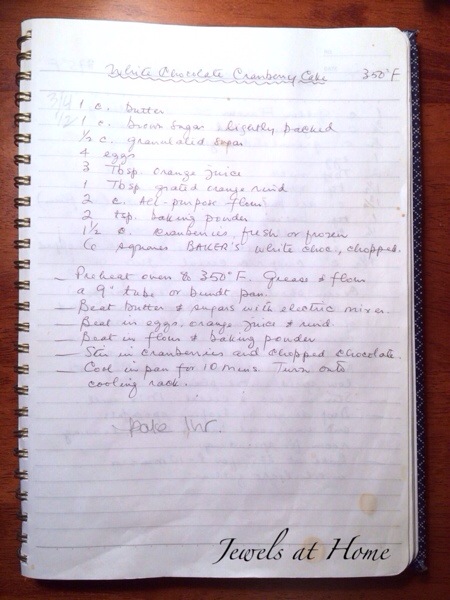 White Chocolate Cranberry Cake 350°F
3/4 1 c. butter
1/2 1 c. brown sugar lightly packed
1/2 c. granulated sugar
4 eggs
3 Tbsp. orange juice
1 Tbsp grated orange rind
2 c. All-purpose flour
2 tsp. baking powder
1 1/2 c. cranberries, fresh or frozen
6 squares BAKER'S white choc, chopped.
– Preheat oven to 350°F. Grease & flour
a 9" tube or bundt pan.
– Beat butter & sugars with electric mixer
– Beat in eggs, orange juice & rind.
– Beat in flour & baking powder
– Stir in cranberries and chopped chocolate.
– Cool in pan for 10 mins. Turn onto
cooling rack.
– bake 1 hr.
Jewels at Home